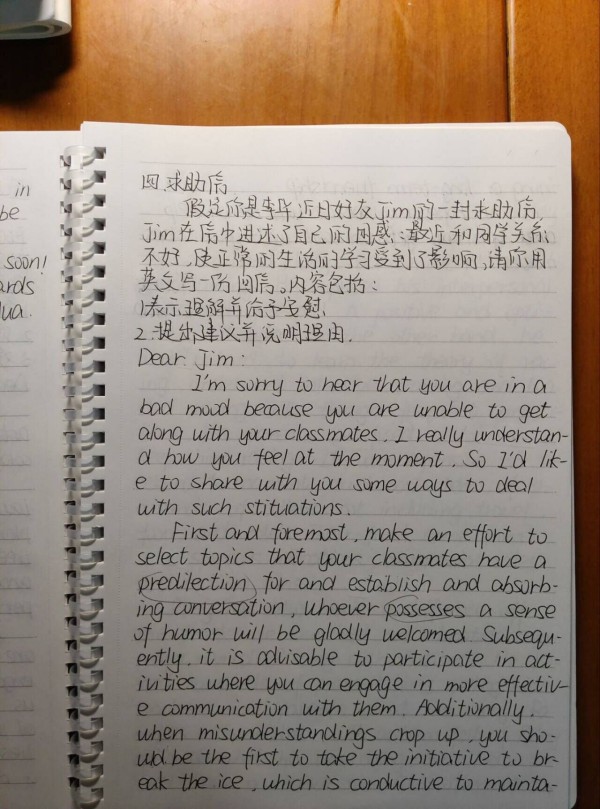 in
be
soon!
ards
lua.
四.求助信
假定你是李华近日好友Jim的一封求助信,
Jim在信中讲述了自己的困惑:最近和同学关系
不好,使正常的生活的学习受到了影响,请你用
英文写一份回信,内容包括:
1表示理解并给予安慰.
2.提出建议并说明理由.
Dear Jim:
I'm sorry to hear that you are in a
bad mood because you are unable to get
along with your classmates. I really understan-
d how you feel at the moment. So I'd lik-
e to share with you some ways to deal
with such stituations.
First and foremost, make an effort to
select topics that your classmates have a
predilection for and establish and absorb-
ing conversation, whoever possesses a sense
of humor will be gladly welcomed. Subsequ-
ently, it is advisable to participate in act-
ivities where you can engage in more effectiv-
e communication with them. Additionally,
when misunderstandings crop up, you sho-
uld be the first to take the initiative to br-
eak the ice, which is conductive to mainta-